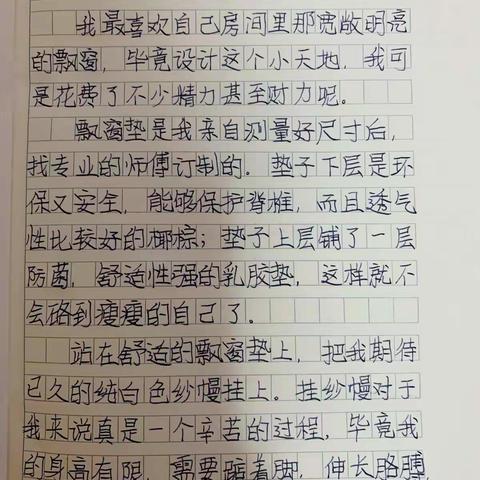 我最喜欢自己房间里那宽敞明亮
的飘窗，毕竟设计这个小天地，我可
是花费了不少精力甚至财力呢。
飘窗垫是我亲自测量好尺寸后，
找专业的师傅订制的．垫子下层是环
保又安全，能够保护脊椎，而且透气
性比较好的椰棕；垫子上层铺了一层
防菌，舒适性强的乳胶垫，这样就不
会硌到瘦瘦的自己了。
站在舒适的飘窗垫上，把我期待
已久的纯白色纱幔挂上．挂纱幔对于
我来说真是一个辛苦的过程，毕竟我
的身高有限，需要踮着脚，伸长胳膊，